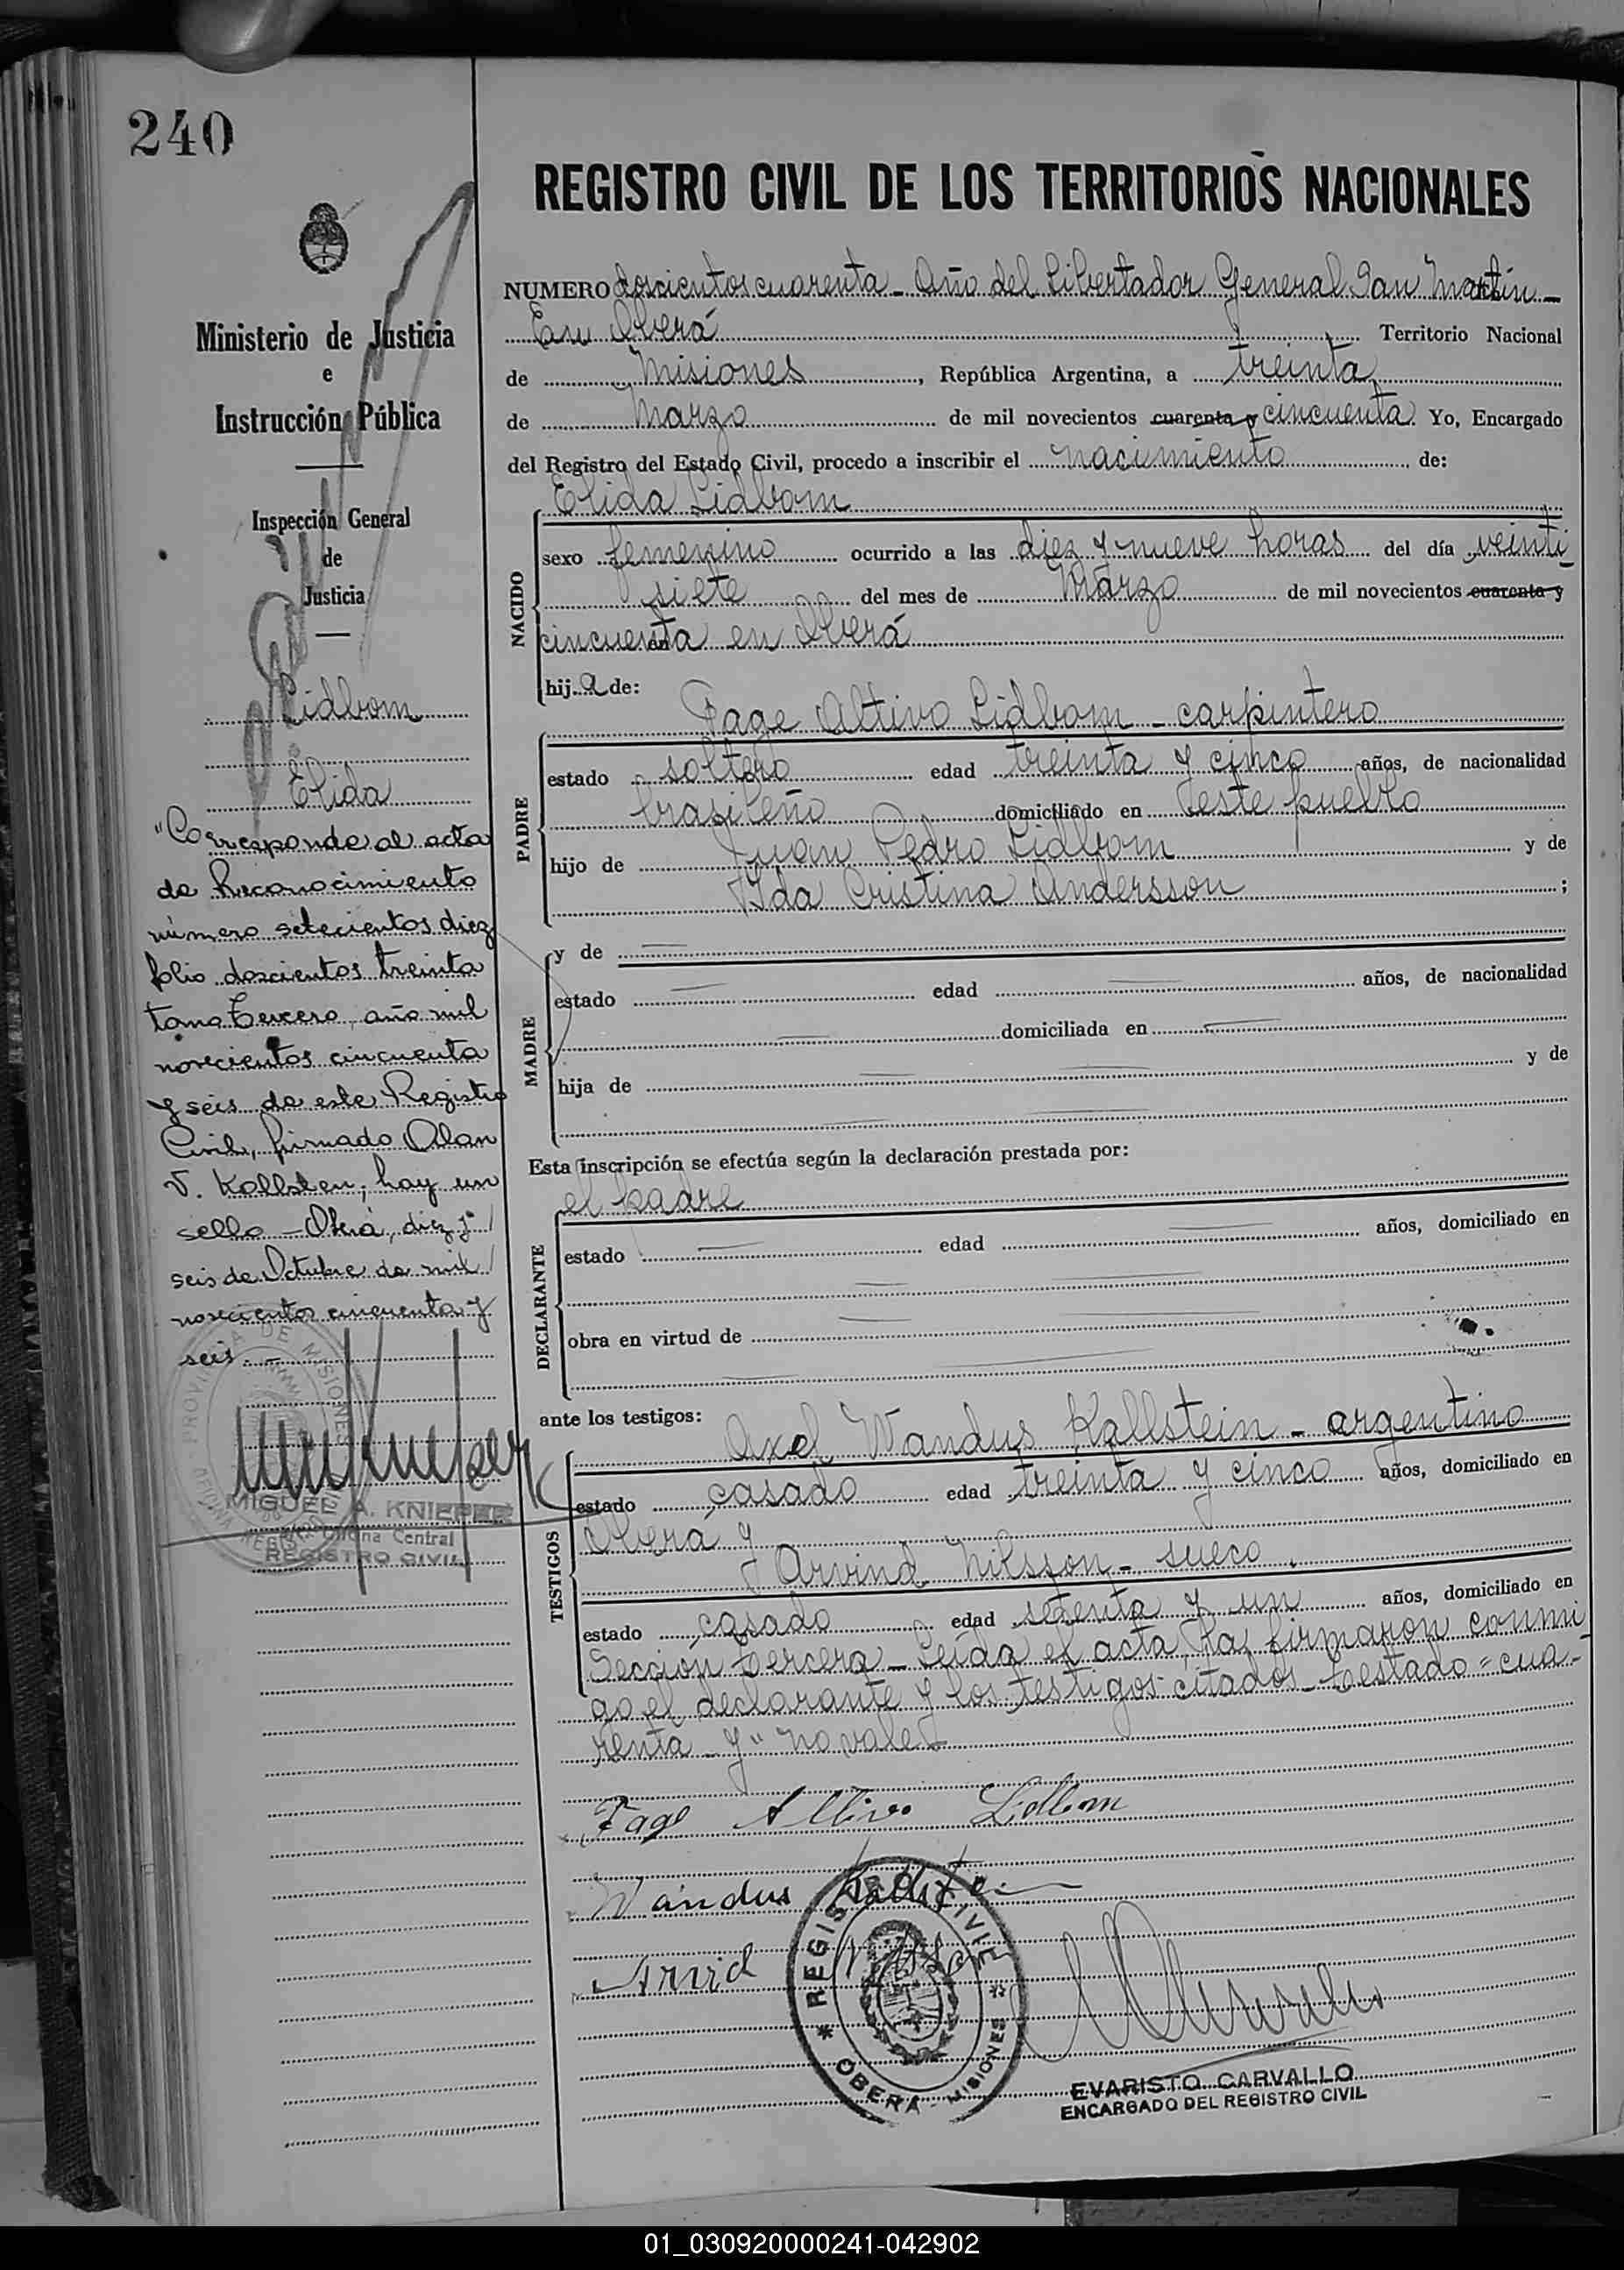 240
REGISTRO CIVIL DE LOS TERRITORIOS NACIONALES
Ministerio de Justicia
e
Instrucción Pública
Inspección General
de
Justicia
Lidbom
Elida
"Corresponde al acta
de Reconocimiento
número setecientos diez
folio doscientos treinta
tomo tercero, año mil
novecientos cincuenta
y seis de este Registro
Civil, firmado Alan
V. Kollsten; hay un
sello - Oberá, diez y
seis de Octubre de mil
novecientos cincuenta y
seis. -
PROVINCIA DE MISIONES
MIGUEL A. KNIEPER
Oficina Central
REGISTRO CIVIL
NUMERO doscientos cuarenta - Año del Libertador General San Martín -
En Oberá Territorio Nacional
de Misiones, República Argentina, a treinta
de Marzo de mil novecientos cuarenta y cincuenta. Yo, Encargado
del Registro del Estado Civil, procedo a inscribir el nacimiento de:
Elida Lidbom
NACIDO
sexo femenino ocurrido a las diez y nueve horas del día veinti
siete del mes de Marzo de mil novecientos cuarenta y
cincuenta en Oberá
hija de:
Tage Altivo Lidbom - carpintero
PADRE
estado soltero edad treinta y cinco años, de nacionalidad
brasileño domiciliado en este pueblo
hijo de Juan Pedro Lidbom y de
Ida Cristina Andersson ;
MADRE
y de
estado edad años, de nacionalidad
domiciliada en
hija de y de
Esta inscripción se efectúa según la declaración prestada por:
el padre
DECLARANTE
estado edad años, domiciliado en
obra en virtud de
ante los testigos:
Axel Wandus Kallstein - argentino
TESTIGOS
estado casado edad treinta y cinco años, domiciliado en
Oberá y
Arvind Nilsson - sueco.
estado casado edad setenta y un años, domiciliado en
Sección tercera - Leída el acta, la firmaron conmi
go el declarante y los testigos citados - testado "cua-
renta y" no vale -
Tage Altivo Lidbom
Wandus Kallstein
Arvid Nilsson
REGISTRO CIVIL
OBERA - MISIONES
EVARISTO CARVALLO
ENCARGADO DEL REGISTRO CIVIL
01_030920000241-042902